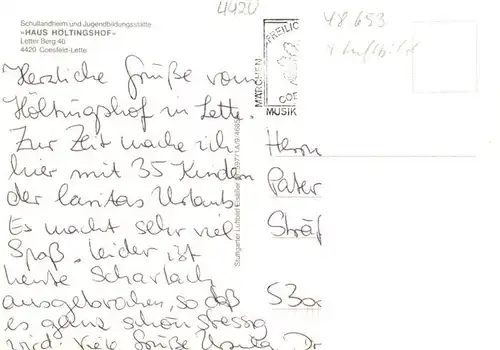 4420
Schullandheim und Jugendbildungsstätte
»HAUS HÖLTINGSHOF«
Letter Berg 40
4420 Coesfeld-Lette
48 653
Luftbild
MÄRCHEN
FREILIC
COE
MUSIK
Herzliche Grüße vom
Höltingshof in Lette.
Zur Zeit mache ich
hier mit 35 Kindern
der Caritas Urlaub.
Es macht sehr viel
Spaß. Leider ist
heute Scharlach
ausgebrochen, so daß
es ganz schön stressig
wird. Viele Grüße Ursula
Stuttgarter Luftbild Elsäßer
Herrn
Pater
Sträf
530